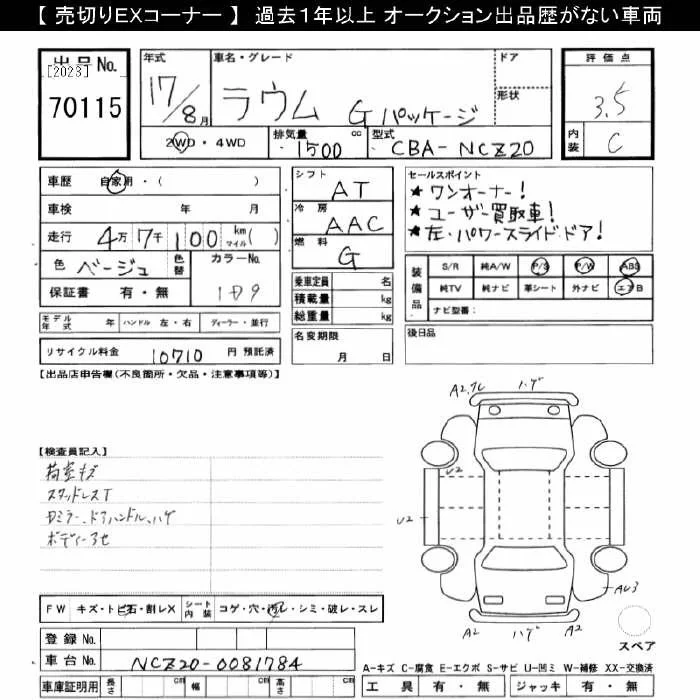 【 売切りEXコーナー 】 過去1年以上 オークション出品歴がない車両
出品No.
[2023]
70115
年式
17/8月
車名・グレード
ラウム Gパッケージ
ドア
形状
2WD・4WD
排気量
1500 cc
型式
CBA-NCZ20
評価点
3.5
内装
C
車歴 自家用・( )
車検 年 月
走行 4万 7千 100 km マイル( )
色 ベージュ 色替
カラーNo.
1D9
保証書 有・無
シフト AT
冷房 AAC
燃料 G
乗車定員 名
積載量 kg
総重量 kg
名変期限
月 日
セールスポイント
★ワンオーナー!
★ユーザー買取車!
★左・パワースライドドア!
装備品
S/R 純A/W P/S P/W ABS
純TV 純ナビ 革シート 外ナビ エアB
ナビ型番:
後日品
モデル年式 年 ハンドル 左・右 ディーラー・並行
リサイクル料金 10710 円 預託済
【出品店申告欄(不良箇所・欠品・注意事項等)】
【検査員記入】
荷室キズ
スタッドレスT
Dミラー、ドアハンドル、ハゲ
ボディーアセ
A2,
ハゲ
U2
U2
AU3
A2
ハゲ
A2
スペア
FW キズ・トビ石・割レX シート内装 コゲ・穴・汚レ・シミ・破レ・スレ
登録No.
車台No. NCZ20-0081784
車庫証明用 長さ cm 幅 cm 高さ cm
A-キズ C-腐食 E-エクボ S-サビ U-凹ミ W-補修 XX-交換済
工具 有・無 ジャッキ 有・無